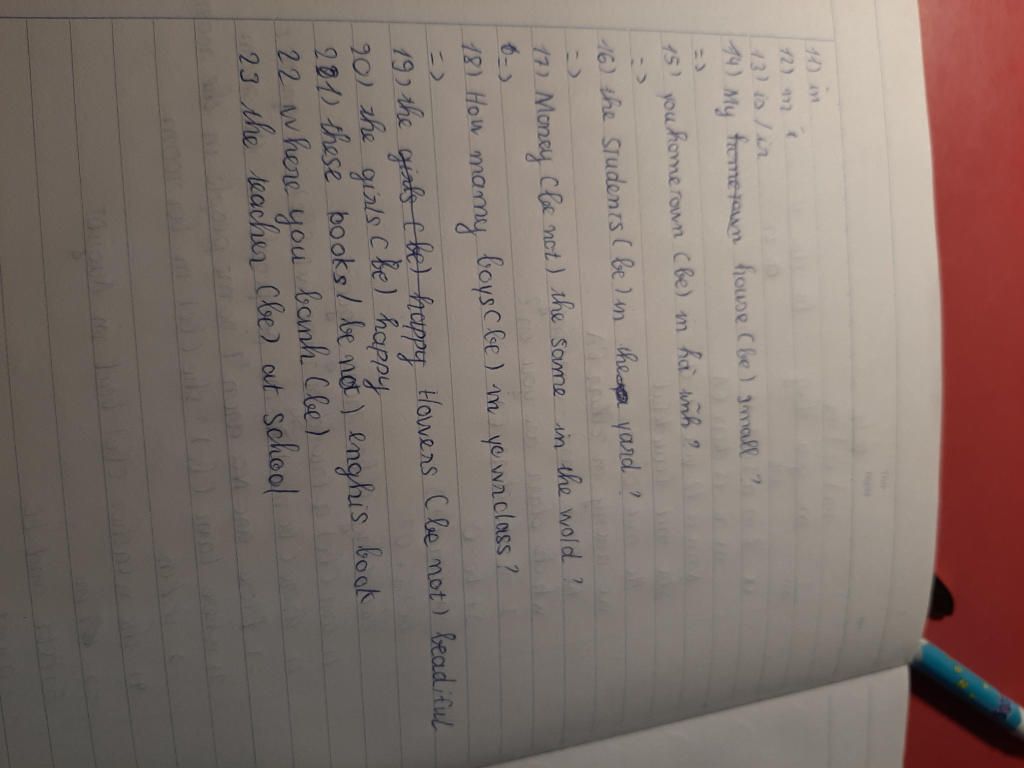 11) in
12) in
13) is / in
14) My house (be) small ?
=>
15) you homerown (be) in hà tĩnh ?
=>
16) the students (be) in the yard ?
=>
17) Money (be not) the same in the wold ?
=>
18) How many boys (be) in your class ?
=>
19) the girls (be) happy flowers (be not) beadiful
20) the girls (be) happy
21) these books (be not) enghis book
22 where you (be)
23 the teacher (be) at school